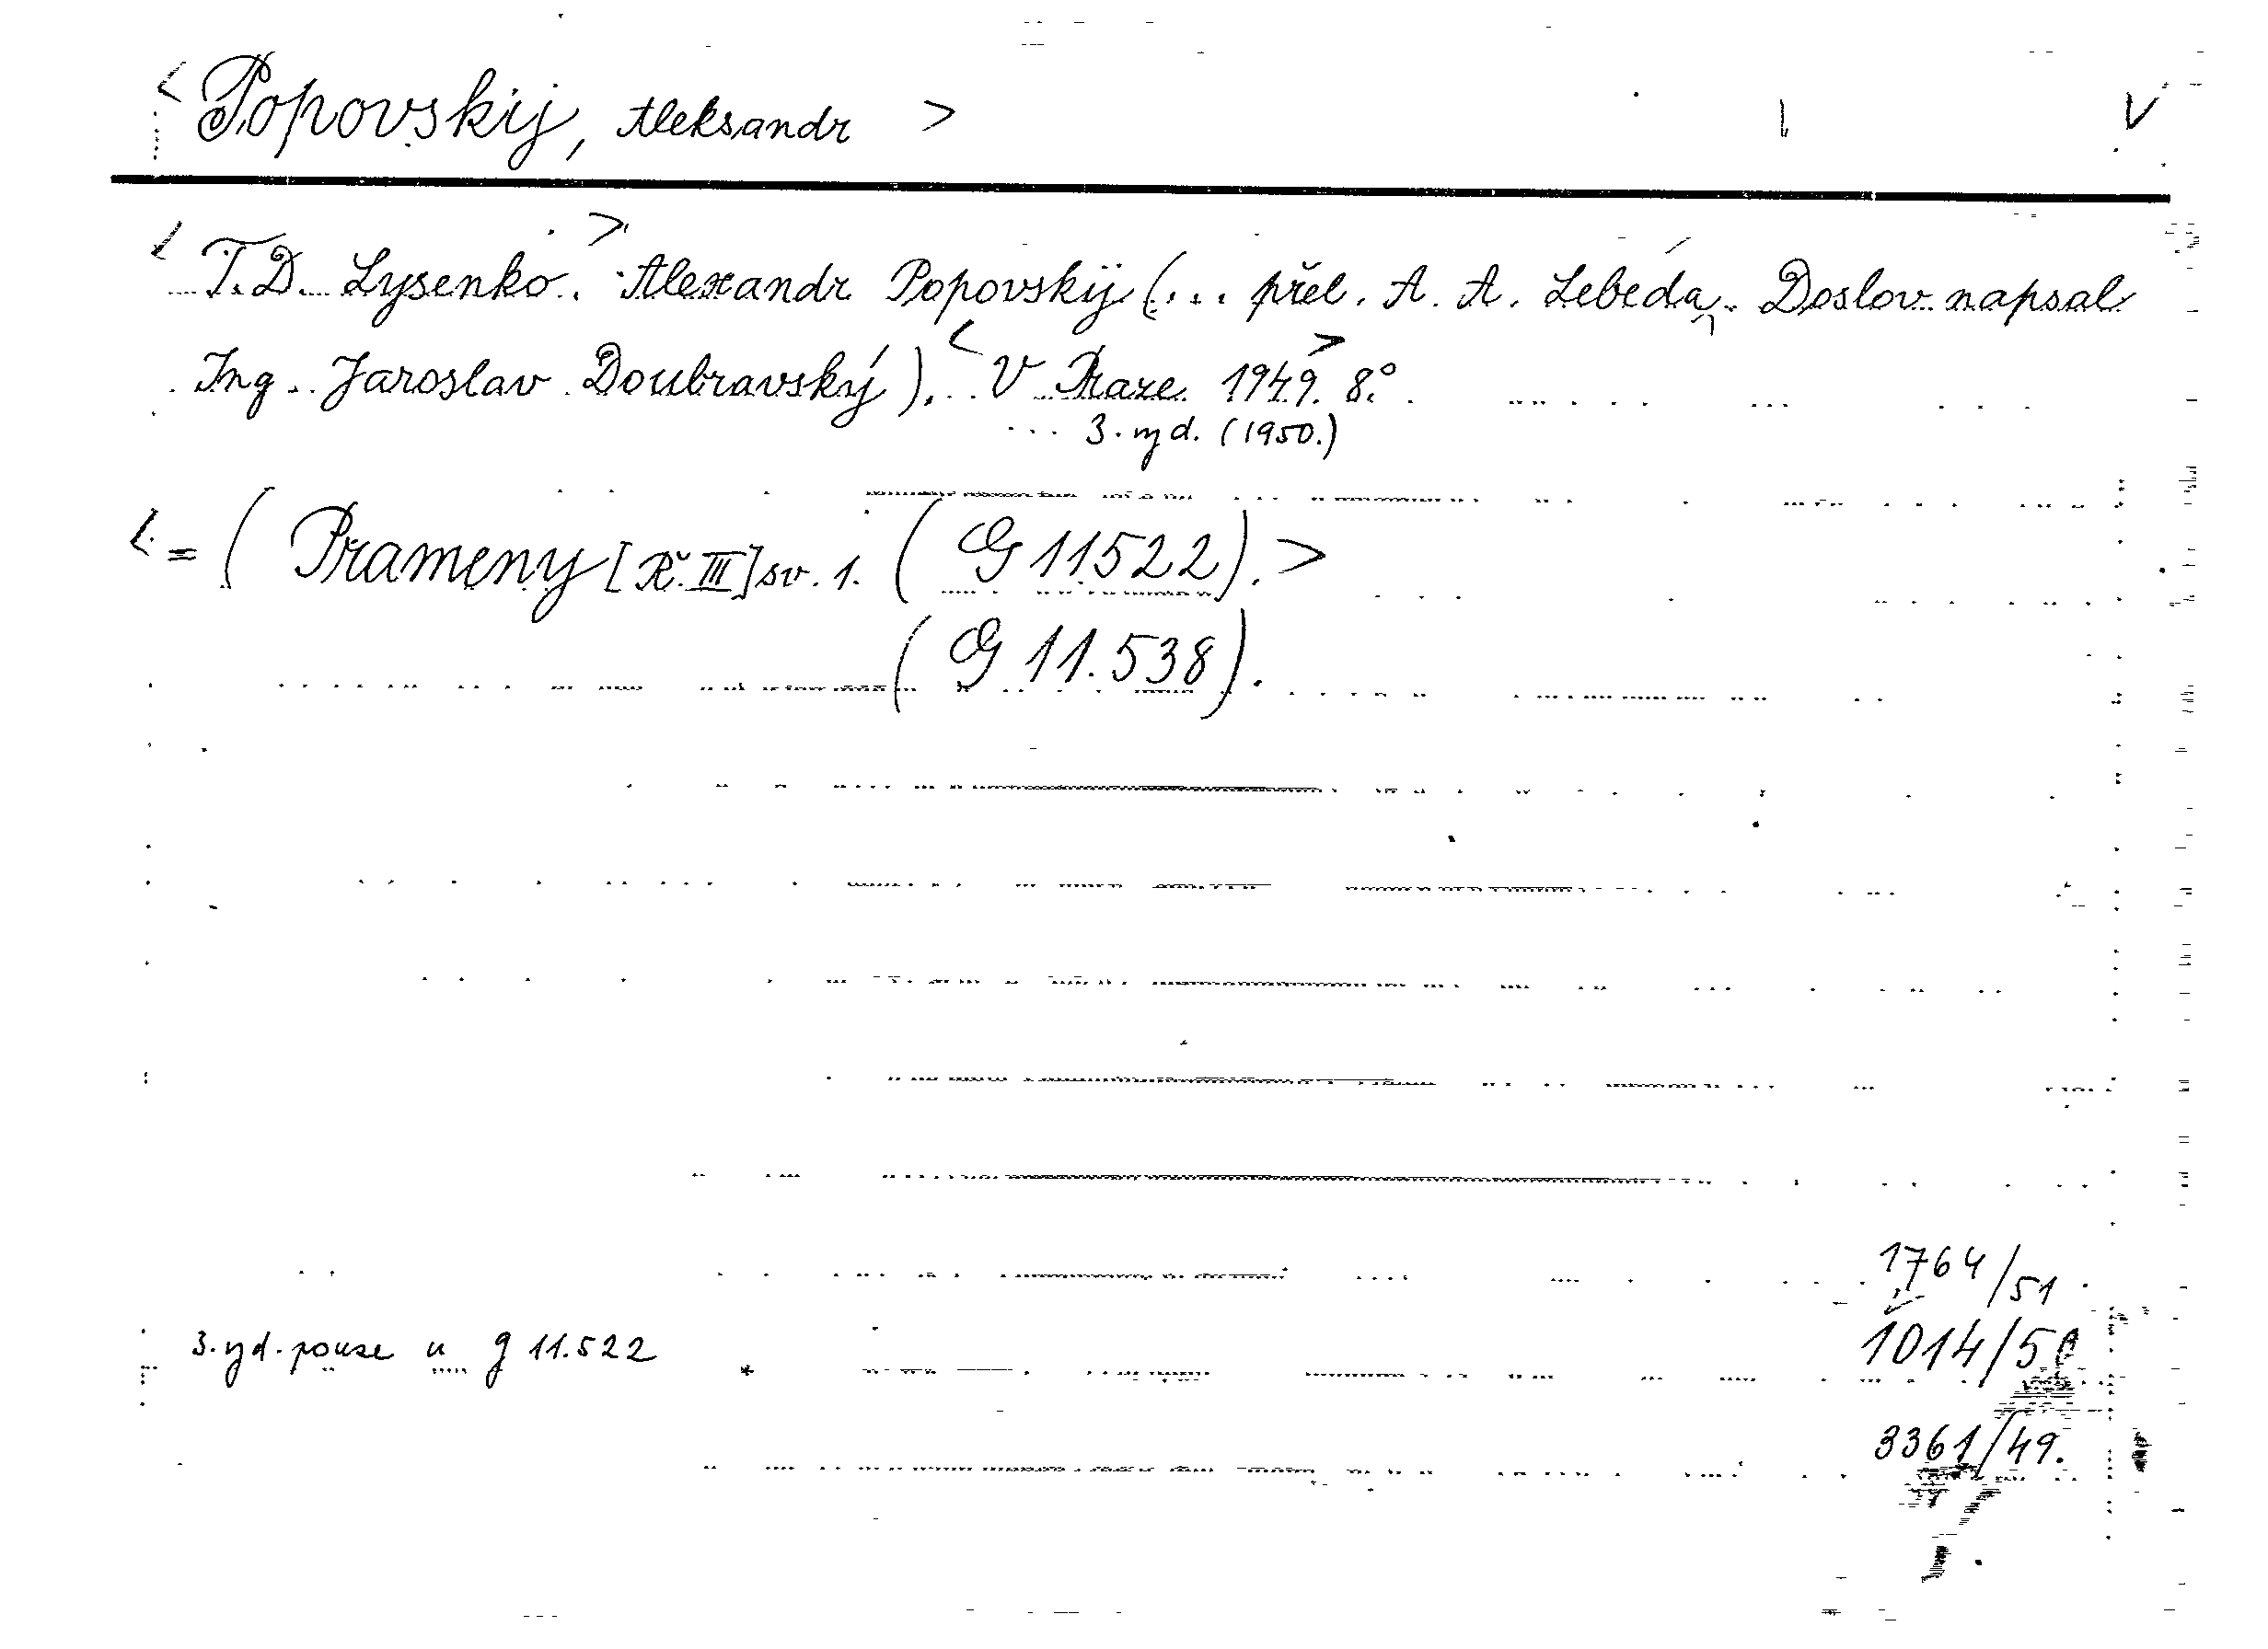 < Popovskij, Aleksandr >
< T. D. Lysenko. > Alexandr Popovskij (... přel. A. A. Lebeda. Doslov napsal
Ing. Jaroslav Doubravský). < V Praze 1949. > 8.°
... 3. vyd. (1950.)
< = ( Prameny [Ř. III] sv. 1. ( G 11522). >
( G 11.538).
1764/51
3. vyd. pouze u g 11.522
1014/50
3361/49.